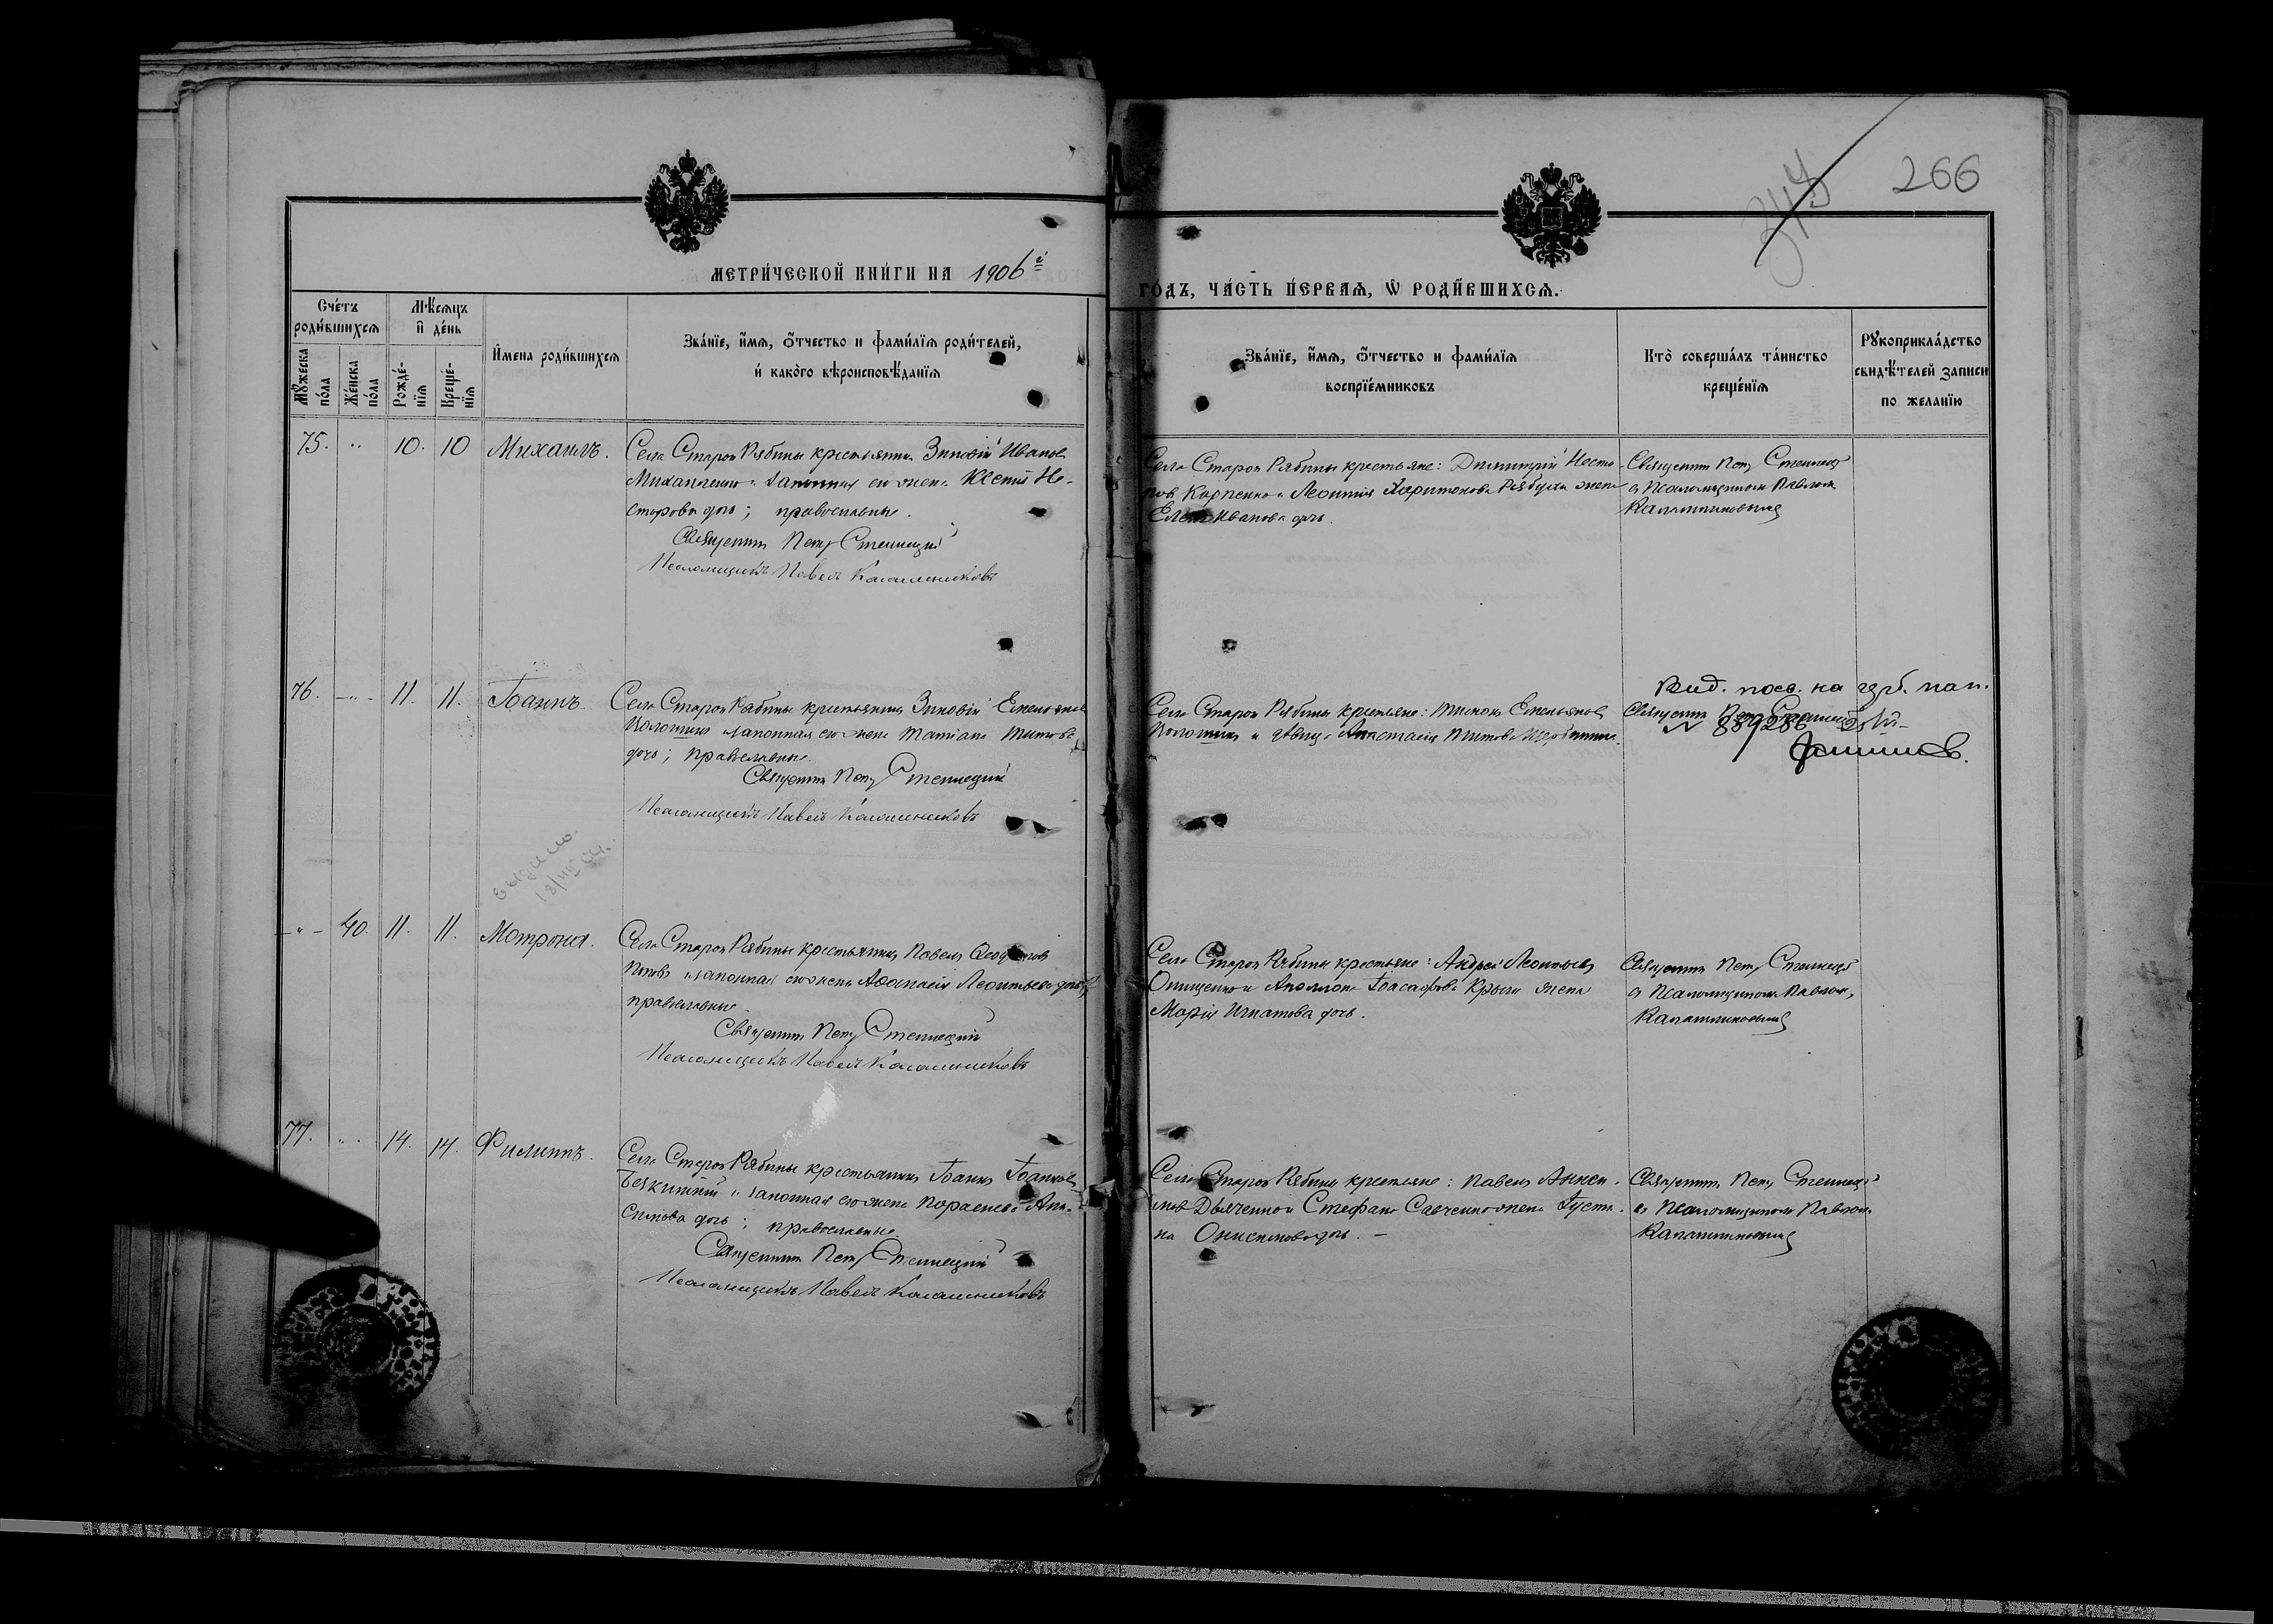 266
МЕТРИЧЕСКОЙ КНИГИ НА 1906й
ГОДЪ, ЧАСТЬ ПЕРВАЯ, Ѡ РОДИВШИХСЯ.
Счетъ родившихся
Мѣсяцъ и день
Имена родившихся
Званіе, имя, ѿчество и фамилія родителей,
и какого вѣроисповѣданія
Званіе, имя, ѿчество и фамилія
воспріемниковъ
Кто совершалъ таинство
крещенія
Рꙋкоприкладство
свидѣтелей записи
по желанію
Мꙋжеска пола
Женска пола
Рождения
Крещенія
75. 10. 10 Михаилъ.
Села Старой Рябины крестьянинъ Зиновій Ивановъ
Михайленко и законная его жена Ксенія Не-
сторова дочь; православные.
Священникъ Петръ Стеллецкій
Псаломщикъ Павелъ Калашниковъ
Села Старой Рябины крестьяне: Димитрій Несто-
ровъ Карпенко и Леонтія Харитонова Рябухи жена
Елена Иванова дочь.
Священникъ Петръ Стеллецкій
съ Псаломщикомъ Павломъ
Калашниковымъ
76. 11. 11. Іоаннъ
Села Старой Рябины крестьянинъ Зиновій Емельяновъ
и законная его жена Татіана Титова
дочь; православные.
Священникъ Петръ Стеллецкій
Псаломщикъ Павелъ Калашниковъ
Села Старой Рябины крестьяне: Емельяновъ
и дѣвица Анастасія Титова
Священникъ Петръ Стеллецкій
Выд. на герб. пап.
N 889286
40. 11. 11. Матрона.
Села Старой Рябины крестьянинъ Павелъ
и законная его жена Аѳанасія Леонтьева дочь;
православные
Священникъ Петръ Стеллецкій
Псаломщикъ Павелъ Калашниковъ
Села Старой Рябины крестьяне: Андрей Леонтьевъ
Онищенко и Аполлона Іоасафова Крыги жена
Марія Игнатова дочь.
Священникъ Петръ Стеллецкій
съ Псаломщикомъ Павломъ
Калашниковымъ
77. 14. 14. Филиппъ.
Села Старой Рябины крестьянинъ Іоаннъ Іоанновъ
и законная его жена Параскева
дочь; православные
Священникъ Петръ Стеллецкій
Псаломщикъ Павелъ Калашниковъ
Села Старой Рябины крестьяне: Павелъ
Дьяченко и Стефана Савченко жена Густи-
на Онисимова дочь. –
Священникъ Петръ Стеллецкій
съ Псаломщикомъ Павломъ
Калашниковымъ